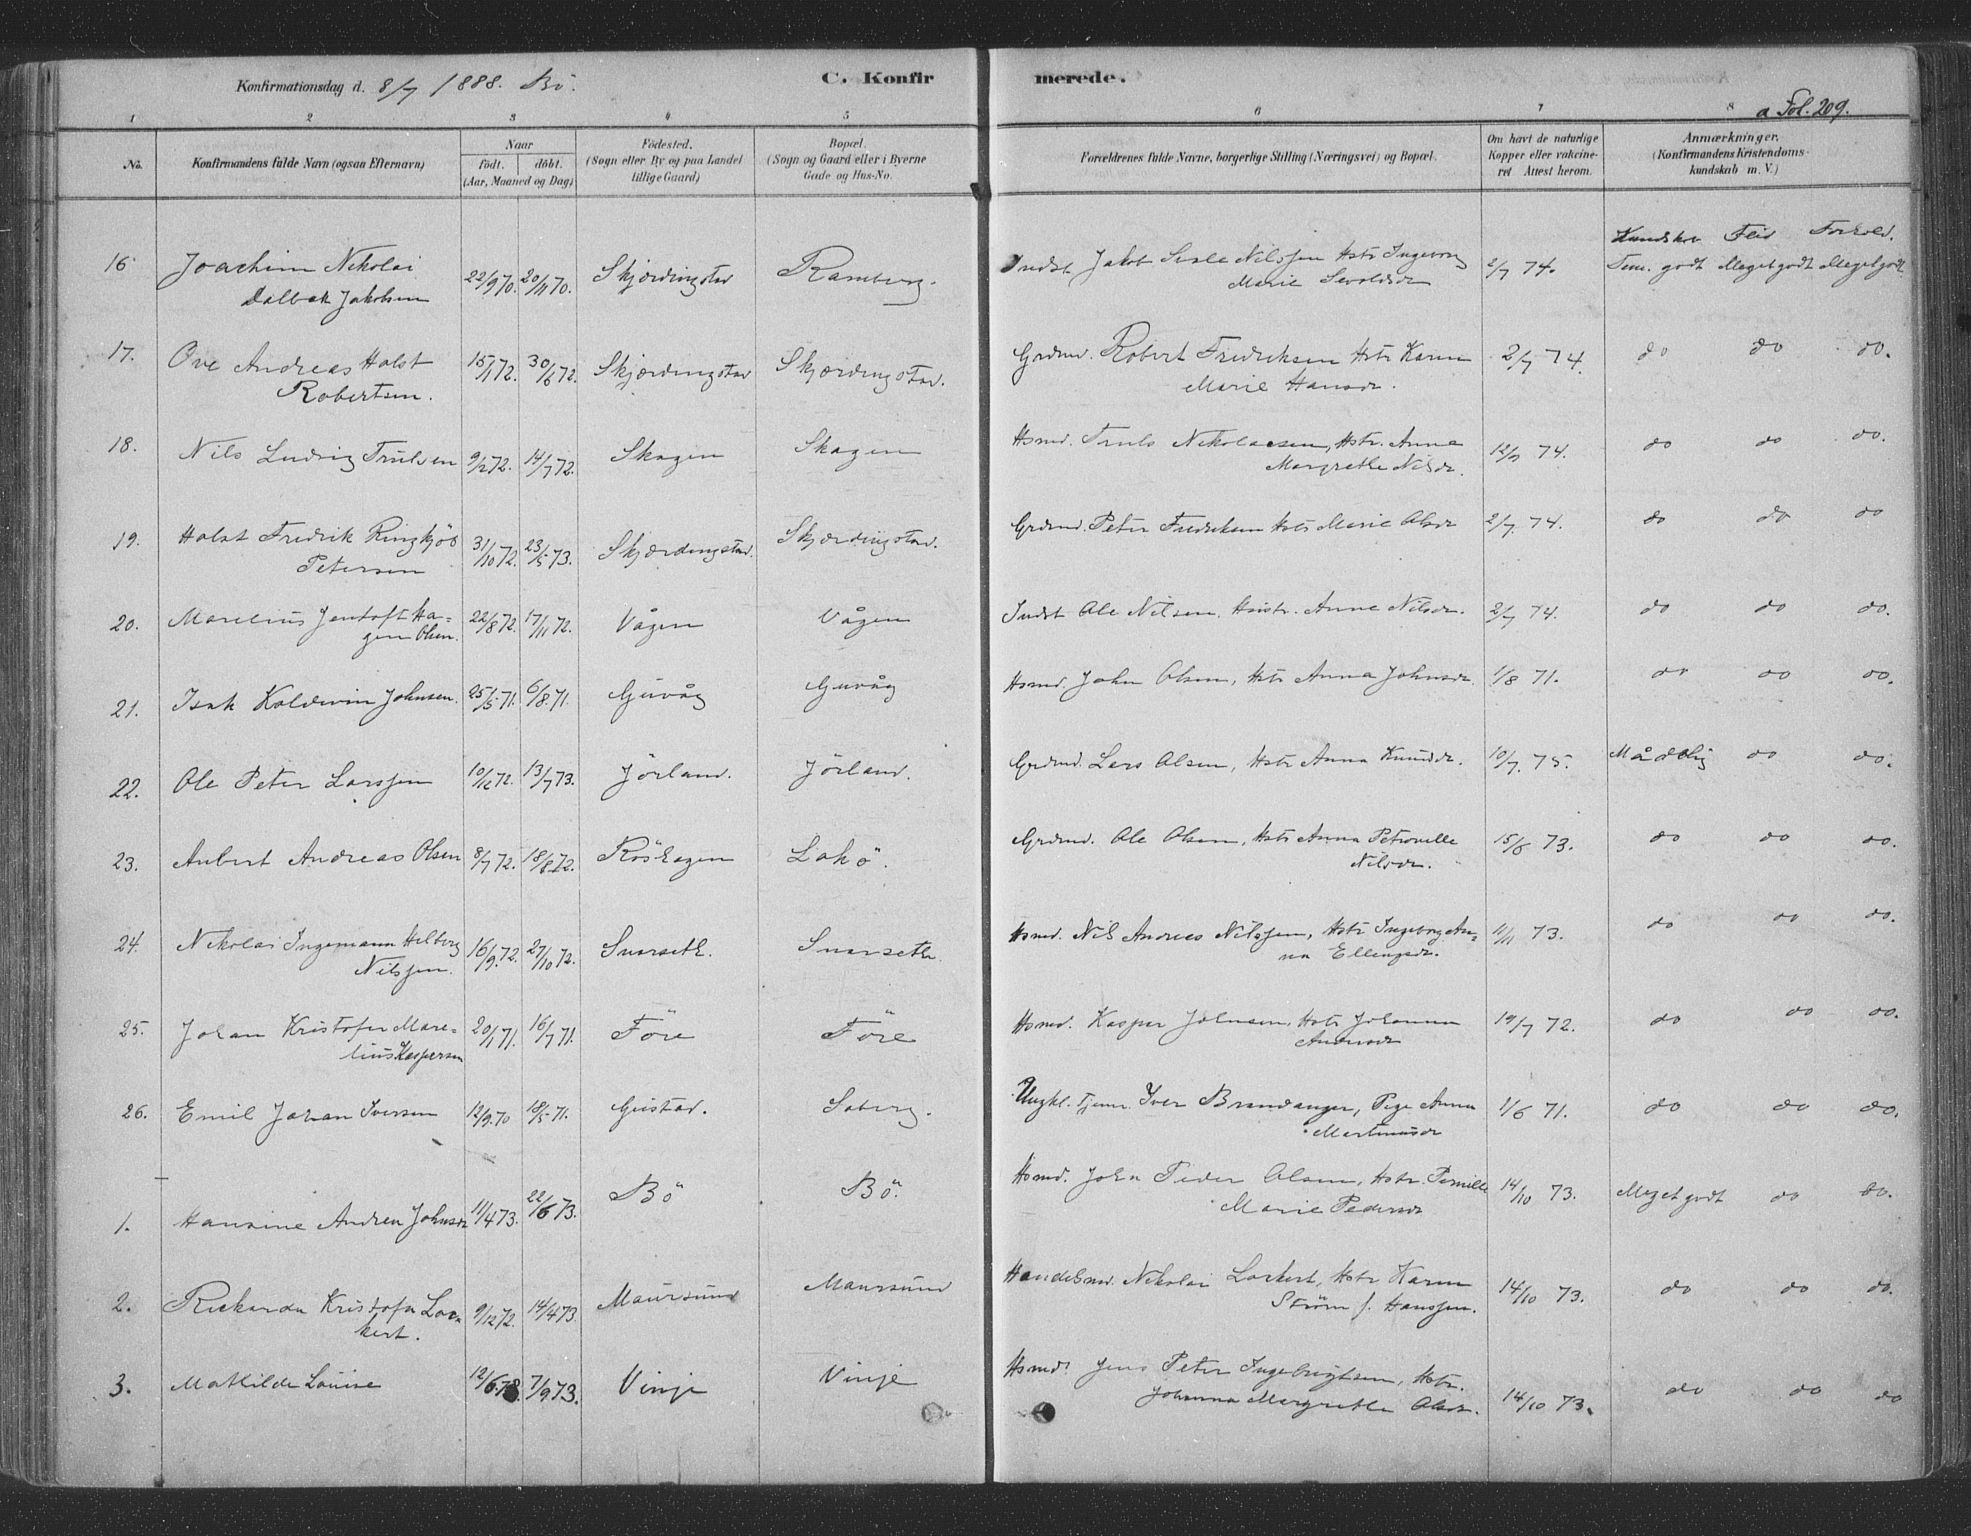 Konfirmationsdag d. 8/7 1888. Bö.
C. Konfirmerede.
a Fol. 209.
1 2 3 4 5 6 7 8
No. Konfirmandens fulde Navn (ogsaa Efternavn) Naar født. døbt. (Aar, Maaned og Dag) Fødested. (Sogn eller By og paa Landet tillige Gaard) Bopæl. (Sogn og Gaard eller i Byerne Gade og Hus-No. Forældrenes fulde Navne, borgerlige Stilling (Næringsvei) og Bopæl. Om havt de naturlige Kopper eller vakcineret Attest herom. Anmærkninger. (Konfirmandens Kristendomskundskab m. V.)
Kundskab Flid Forhold.
16 Joachim Nikolai 22/9 70. 20/11 70. Skjærdingstad Ramberg. Indst Jakob Nilssen Hstr Ingeborg 2/7 74. Tem. godt Meget godt Meget godt
Dalbak Jakobsen Marie Sevaldsdr
17. Ove Andreas Holst 15/1 72. 30/6 72. Skjærdingstad Skjærdingstad. Grdmd. Robert Fredriksen Hstr Karen 2/7 74. do do do.
Robertsen. Marie Hansdr.
18. Nils Ludvig Trulsen 9/2 72. 14/7 72. Skagen Skagen Hsmd. Truls Nikolaesen, Hstr. Anna 12/7 74. do do do.
Margrethe Nilsdr.
19. Holst Fredrik Ringkjöb 31/10 72. 23/5 73. Skjærdingstad. Skjærdingstad. Grdmd. Peter Fredriksen Hstr Marie Olsdr 2/7 74. do do do
Petersen
20. Marelius Jentoft Ha- 22/8 72. 17/11 72. Vågen Vågen Indst Ole Nilsen. Hustr. Anne Nilsdr. 2/7 74. do do do.
gen Olsen.
21. Isak Koldevin Johnsen. 25/5 71. 6/8 71. Guvåg Guvåg Hsmd. John Olsen, Hstr Anna Johnsdr. 1/8 71. do do do.
22. Ole Peter Larssen 10/12 72. 13/7 73. Jörland. Jörland. Grdmd. Lars Olsen, Hstr Anna Knudsdr. 10/7. 75. Mådelig do do.
23. Anbert Andreas Olsen 8/7 72. 18/8 72. Röskagen Lakö. Grdmd. Ole Olsen, Hstr Anna Petronelle 15/6 73. do do do.
Nilsdr.
24. Nikolai Ingemann Helberg 16/9. 72. 27/10 72. Snarseth. Snarseth. Hsmd. Nil Andreas Nilssen, Hstr Ingeborg An- 11/11 73. do do do.
Nilssen. na Ellingsdr.
25. Johan Kristofer Mare- 20/1 71. 16/7 71. Före Före Hsmd. Kasper Johnsen, Hstr Johanna 19/7 72. do do do.
lius Kaspersen Andersdr
26. Emil Johan Iversen 12/9 70 18/5 71. Gustad. Soberg. Ungkl. Tjener. Iver Brandanger, Pige Anna 1/6 71. do do do.
Martinusdr
1. Hansine Andrea Johnsdr 11/4 73. 22/6 73. Bö Bö. Hsmd. John Peder Olsen, Hstr. Pernille 14/10 73. Meget godt do do.
Marie Pedersdr
2. Rickarda Kristofa Loc- 9/12 72. 14/4 73. Maursund Maursund Handelsmd. Nikolai Lockert, Hstr Karen 14/10 73. do do do.
kert. Strøm f. Hanssen.
3. Mathilde Louise 12/6 73. 7/9 73. Vinje Vinje Hsmd. Jens Peter Ingebrigtsen, Hstr. 14/10 73. do do do
Johanna Margrethe Olsdr.